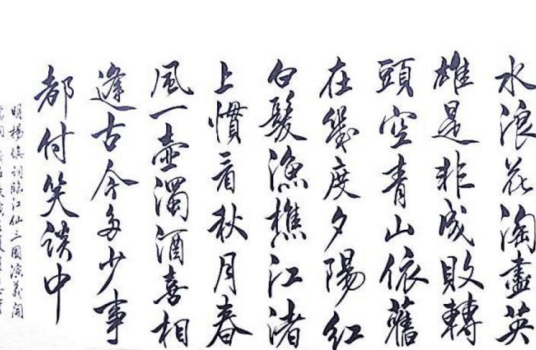 水浪花淘盡英
雄是非成敗轉
頭空青山依舊
在幾度夕陽紅
白髮漁樵江渚
上慣看秋月春
風一壺濁酒喜相
逢古今多少事
都付笑談中
明楊慎詞臨江仙三國演義開